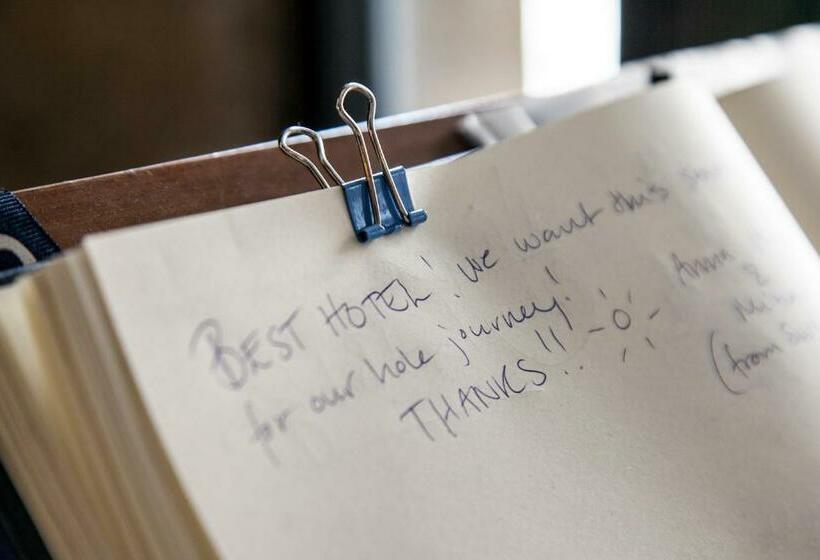 BEST HOTEL! we want this
for our hole journey!
THANKS!!
Anna
&
(from